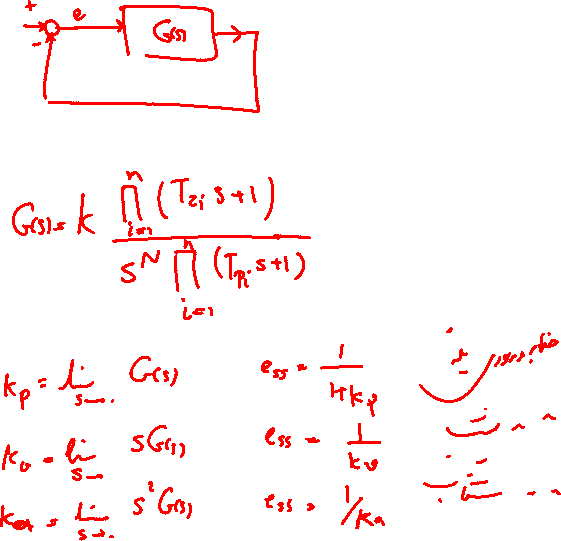 + e
-
G(s)
G(s) = k ∏ i=1 n (Tzi s+1) / s^N ∏ i=1 n (Tpi s+1)
kp = lim s→0 G(s) ess = 1/1+kp
kv = lim s→ sG(s) ess = 1/kv
ka = lim s→0 s² G(s) ess = 1/ka